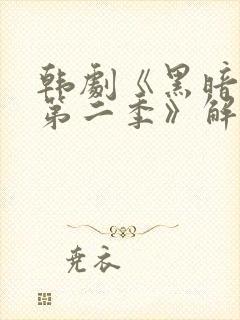 韩剧《黑暗
第二季》解
尧衣